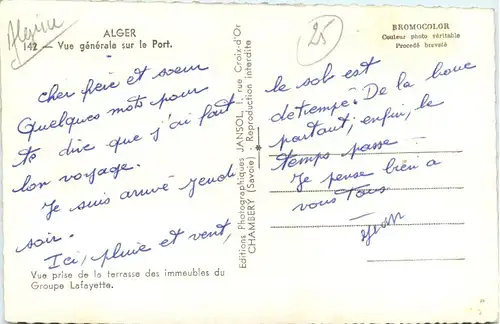 Algérie
ALGER
142 — Vue générale sur le Port.
25
BROMOCOLOR
Couleur photo véritable
Procédé breveté
Cher frère et soeur
Quelques mots pour
te dire que j'ai fait
bon voyage.
Je suis arrivé jeudi
soir.
Ici, pluie et vent,
Vue prise de la terrasse des immeubles du
Groupe Lafayette.
Editions Photographiques JANSOL, 1, rue Croix-d'Or
CHAMBERY (Savoie) - Reproduction interdite
le sol est
détrempé. De la boue
partout, enfin, le
temps passe.
Je pense bien a
vous Tous